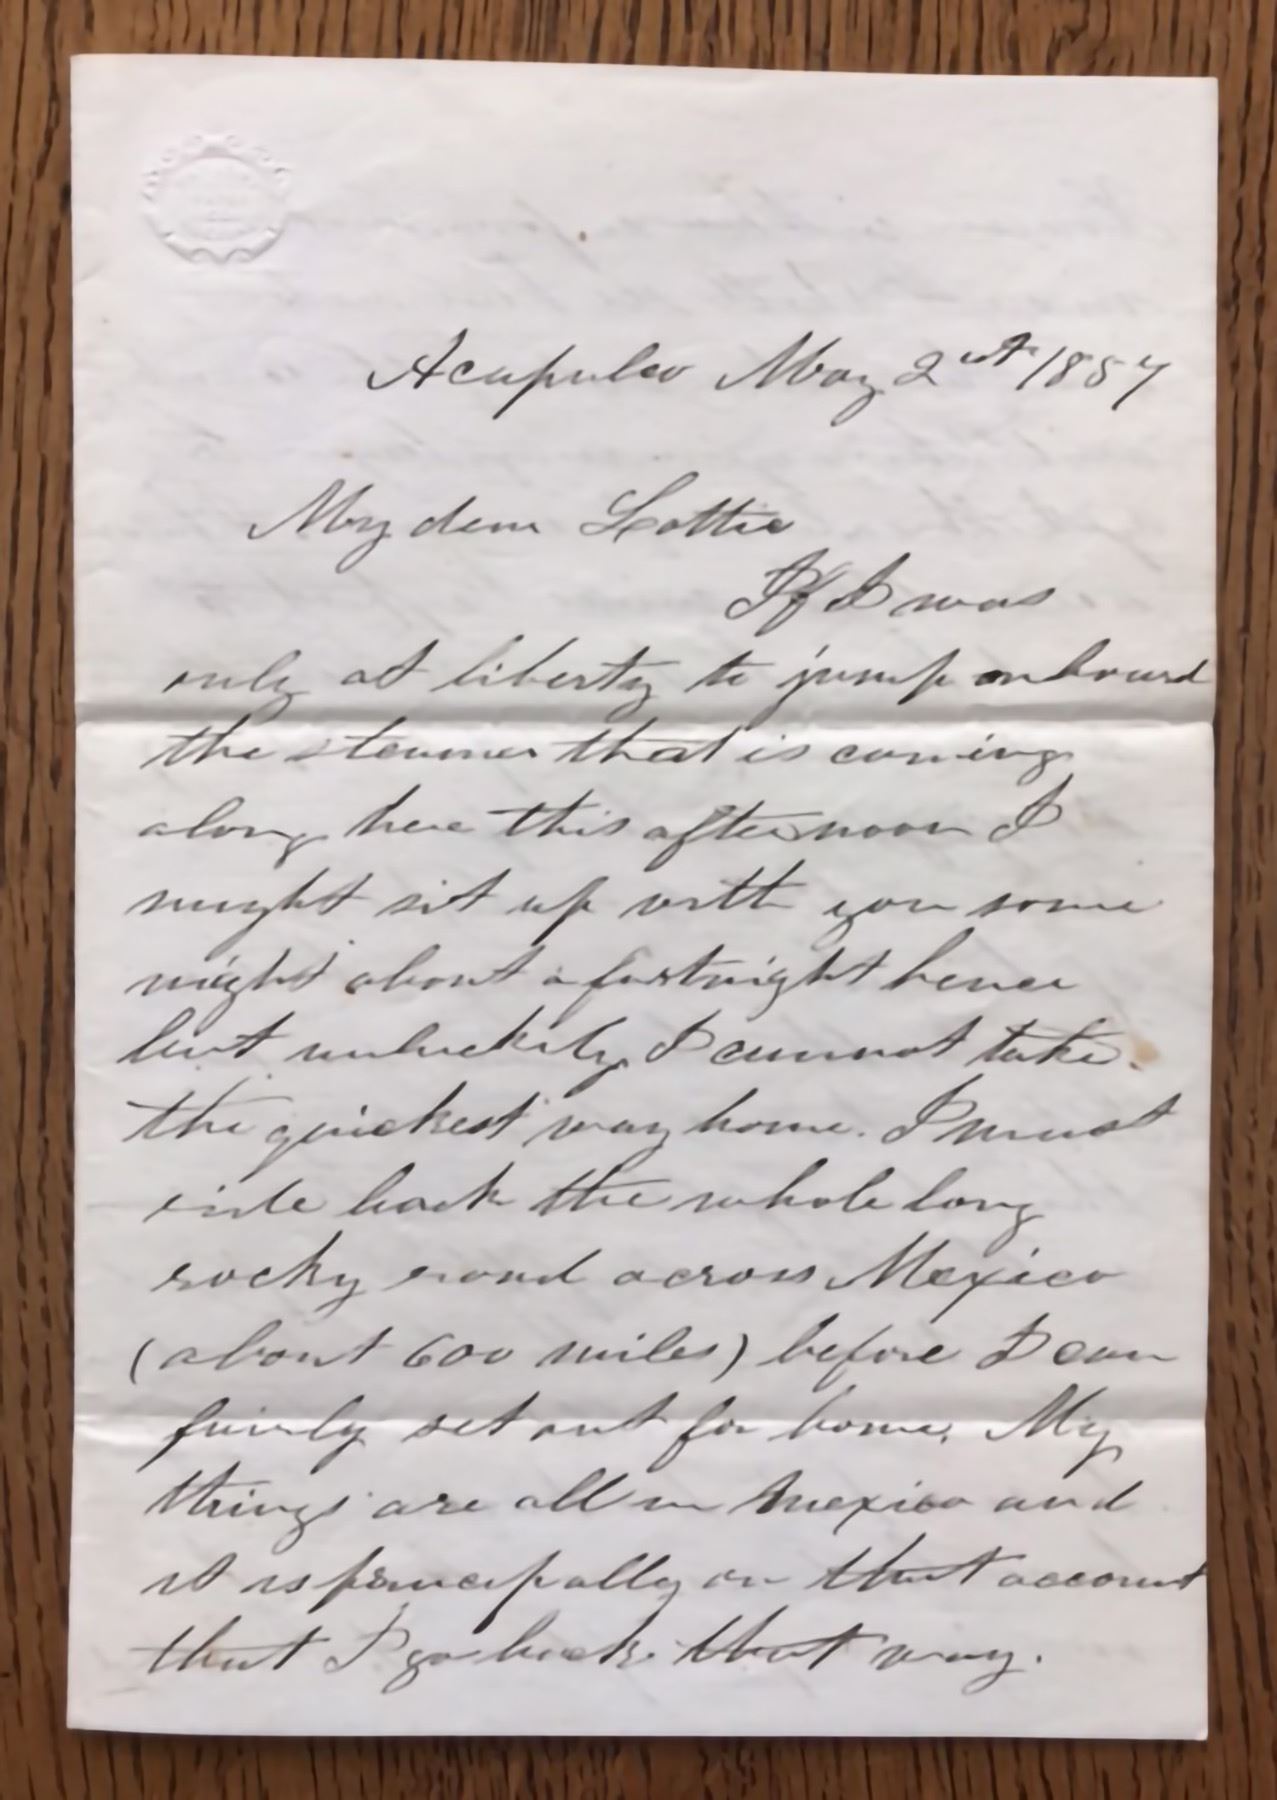 Acapulco May 2nd 1857
My dear Lottie
If I was
only at liberty to jump on board
the steamer that is coming
along here this afternoon I
might sit up with you some
night about a fortnight hence
but unluckily I cannot take
the quickest way home. I must
ride back the whole long
rocky road across Mexico
(about 600 miles) before I can
fairly set out for home. My
things are all in Mexico and
it is principally on that account
that I go back that way.